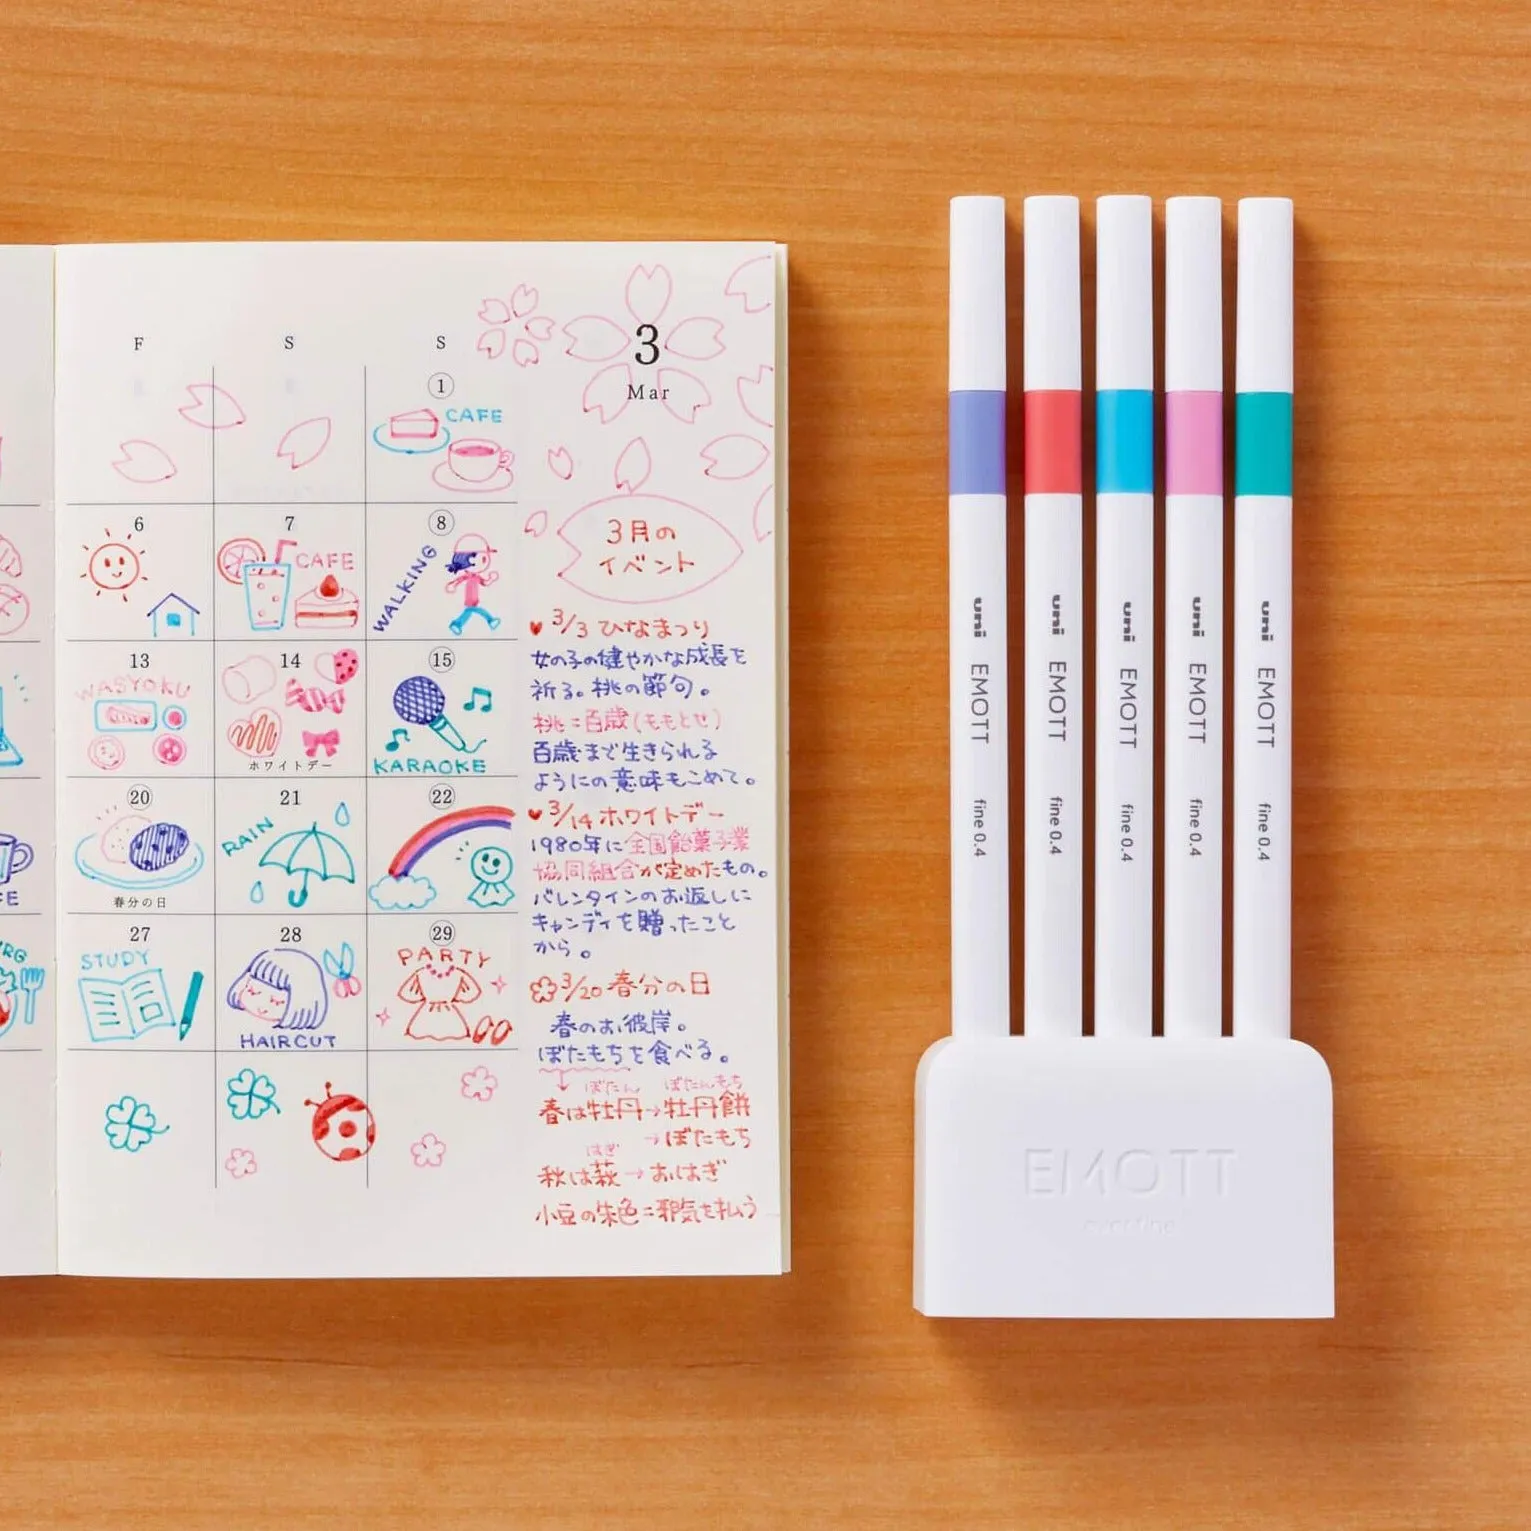 F S S
3
Mar
1
CAFE
6 7 8
CAFE
WALKING
13 14 15
WASYOKU
ホワイトデー
KARAOKE
20 21 22
RAIN
春分の日
27 28 29
STUDY
HAIRCUT
PARTY
3月の
イベント
3/3 ひなまつり
女の子の健やかな成長を
祈る。桃の節句。
桃=百歳(ももとせ)
百歳まで生きられる
ようにの意味もこめて。
3/14 ホワイトデー
1980年に全国飴菓子業
協同組合が定めたもの。
バレンタインのお返しに
キャンディを贈ったこと
から。
3/20 春分の日
春のお彼岸。
ぼたもちを食べる。
ぼたん ぼたんもち
春は牡丹→牡丹餅
→ぼたもち
はぎ
秋は萩→おはぎ
小豆の朱色=邪気を払う
uni EMOTT fine 0.4
uni EMOTT fine 0.4
uni EMOTT fine 0.4
uni EMOTT fine 0.4
uni EMOTT fine 0.4
EMOTT
ever fine